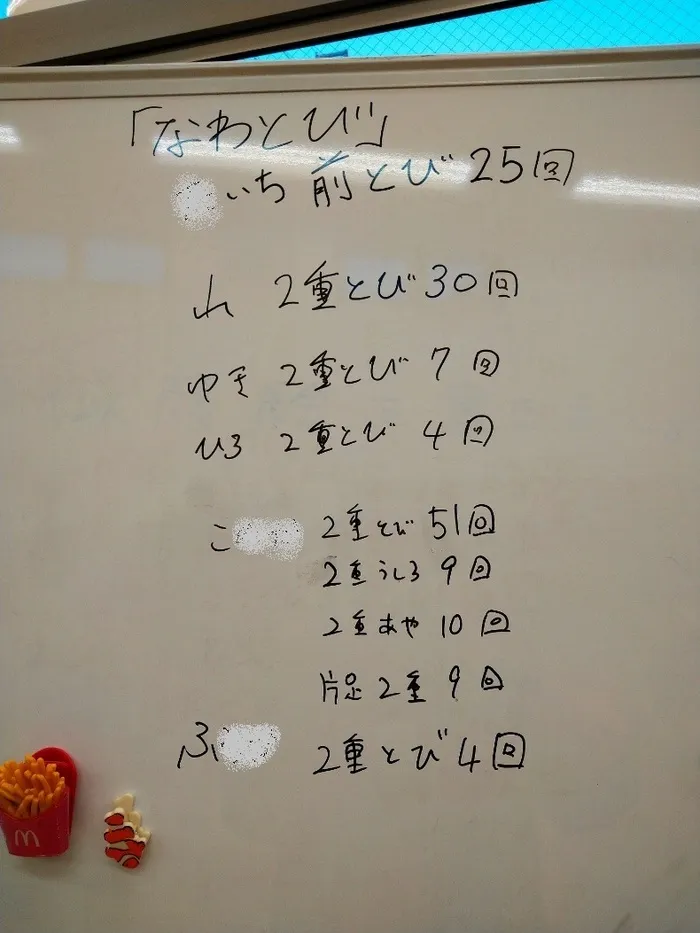 「なわとび」
いち 前とび 25回
れ 2重とび 30回
ゆき 2重とび 7回
ひろ 2重とび 4回
こ 2重とび 51回
2重うしろ 9回
2重あや 10回
片足 2重 9回
ふ 2重とび 4回
M